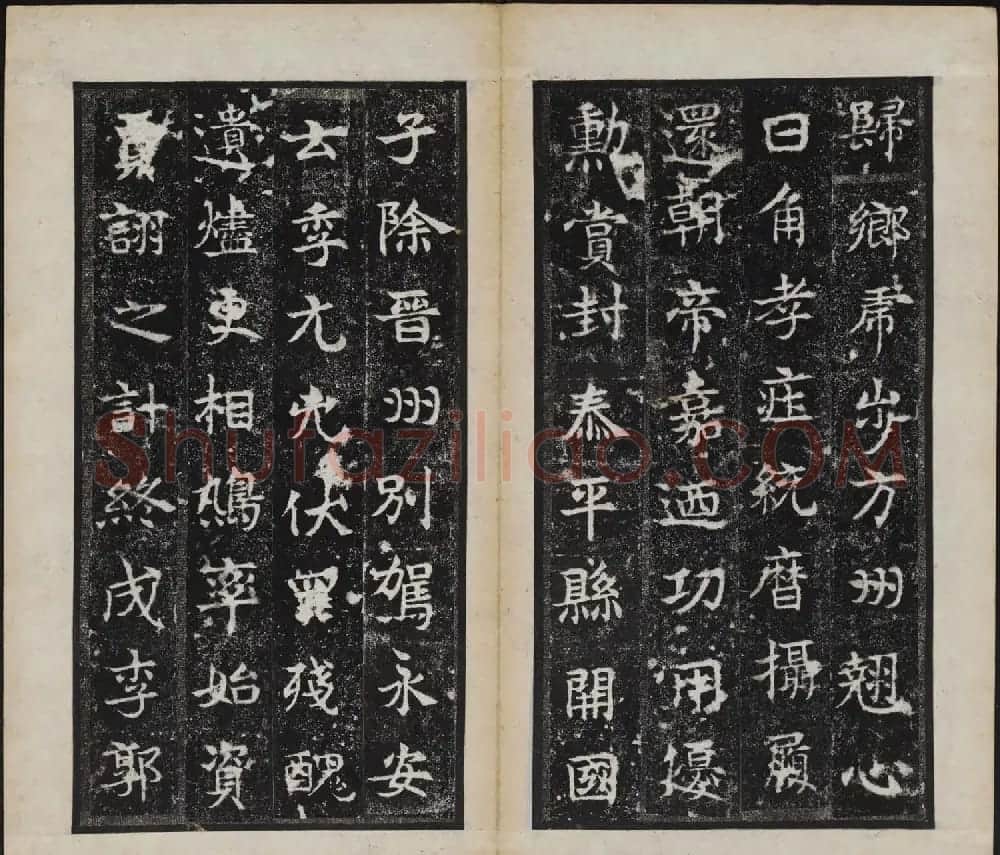 歸鄉虎步方州翹心
日角孝莊統曆攝
還朝帝嘉迺功用優
勳賞封泰平縣開國
子除晉州別駕永安
云季尒朱伏殘醜
遺燼更相鴆率始資
賈詡之計終成李郭
Shufaziliao.COM